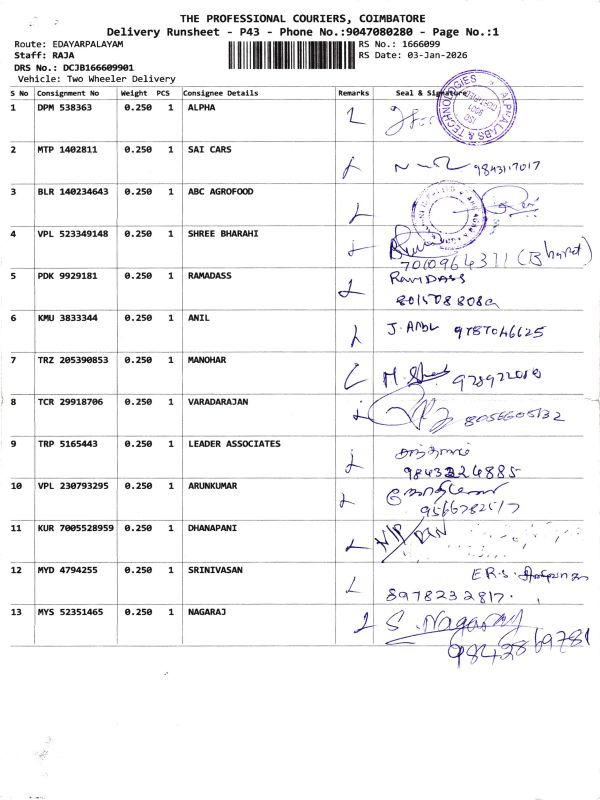 THE PROFESSIONAL COURIERS, COIMBATORE
Delivery Runsheet - P43 - Phone No.:9047080280 - Page No.:1
Route: EDAYARPALAYAM RS No.: 1666099
Staff: RAJA RS Date: 03-Jan-2026
DRS No.: DCJB166609901
Vehicle: Two Wheeler Delivery
S No Consignment No Weight PCS Consignee Details Remarks Seal & Signature
1 DPM 538363 0.250 1 ALPHA L
ALPHA LABS & TECHNOLOGIES
ISO 9001
2 MTP 1402811 0.250 1 SAI CARS L 9843117017
3 BLR 140234643 0.250 1 ABC AGROFOOD L
4 VPL 523349148 0.250 1 SHREE BHARAHI L
7010964311 (Bharat)
5 PDK 9929181 0.250 1 RAMADASS L RamDASS
6 KMU 3833344 0.250 1 ANIL L J. Anil 9787046625
7 TRZ 205390853 0.250 1 MANOHAR
8 TCR 29918706 0.250 1 VARADARAJAN L 8056605132
9 TRP 5165443 0.250 1 LEADER ASSOCIATES L
9843224885
10 VPL 230793295 0.250 1 ARUNKUMAR L
9566782517
11 KUR 7005528959 0.250 1 DHANAPANI L
12 MYD 4794255 0.250 1 SRINIVASAN L E.R.S.
8978232817.
13 MYS 52351465 0.250 1 NAGARAJ L S. Nagaraj
9842869781